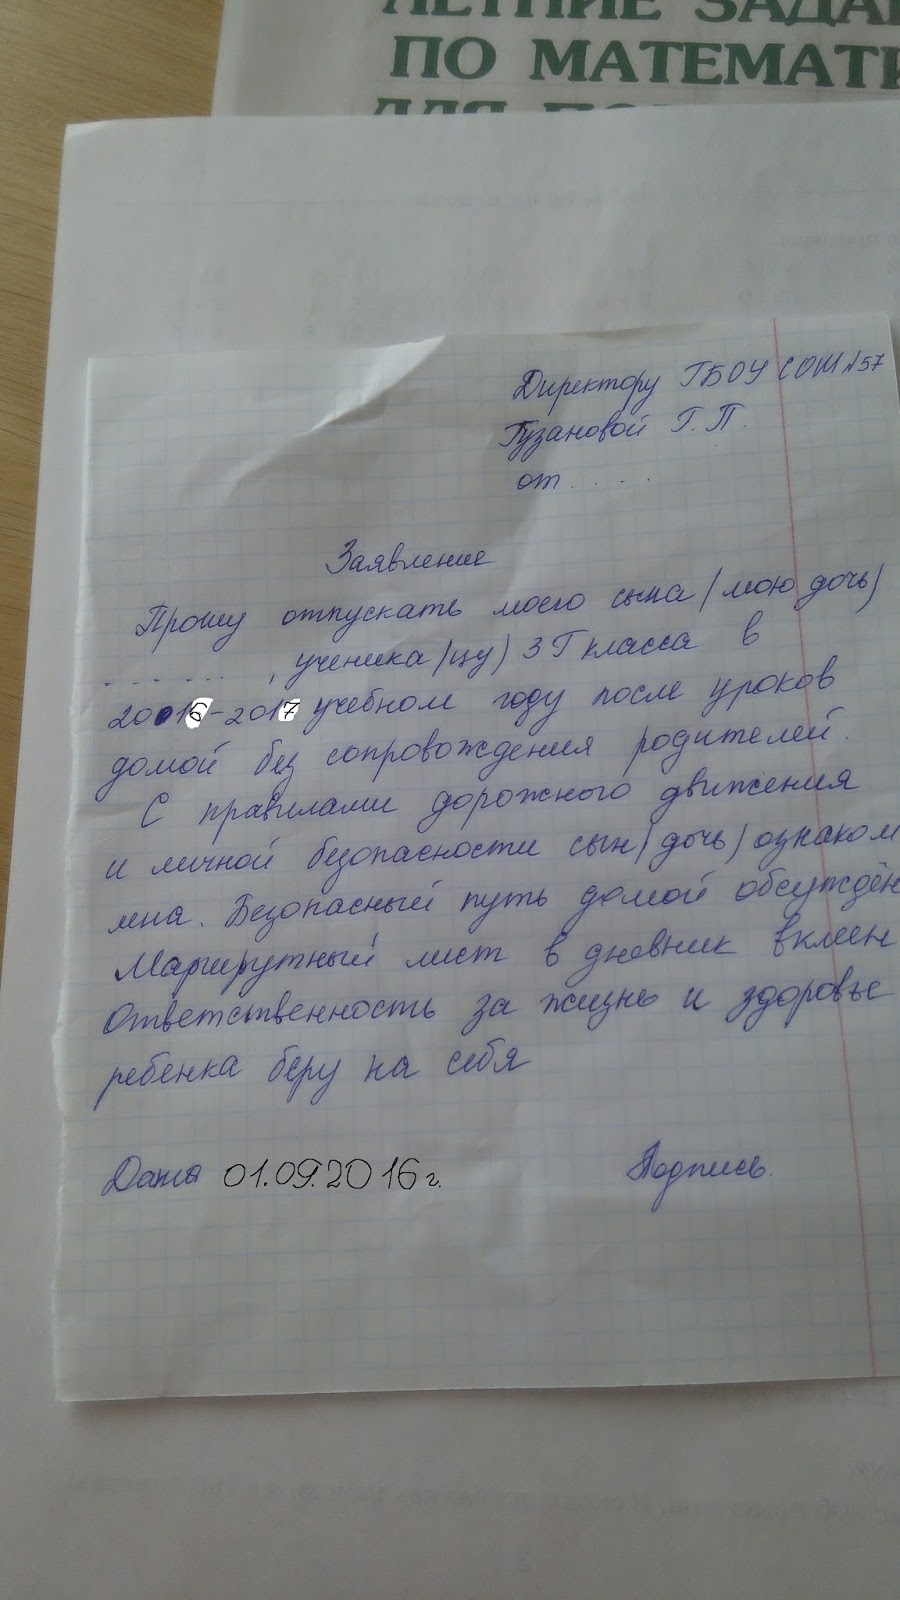 ЛЕТНИЕ ЗАДА
ПО МАТЕМАТИ
ДЛЯ
Директору ГБОУ СОШ №57
Гузановой Г.П.
от . . . . .
Заявление
Прошу отпускать моего сына (мою дочь)
. . . . . . . , ученика (цу) 3 Г класса в
2016-2017 учебном году после уроков
домой без сопровождения родителей.
С правилами дорожного движения
и личной безопасности сын (дочь) ознаком
лена. Безопасный путь домой обсуждён
Маршрутный лист в дневник вклеен
Ответственность за жизнь и здоровье
ребенка беру на себя
Дата 01.09.2016 г. Подпись.